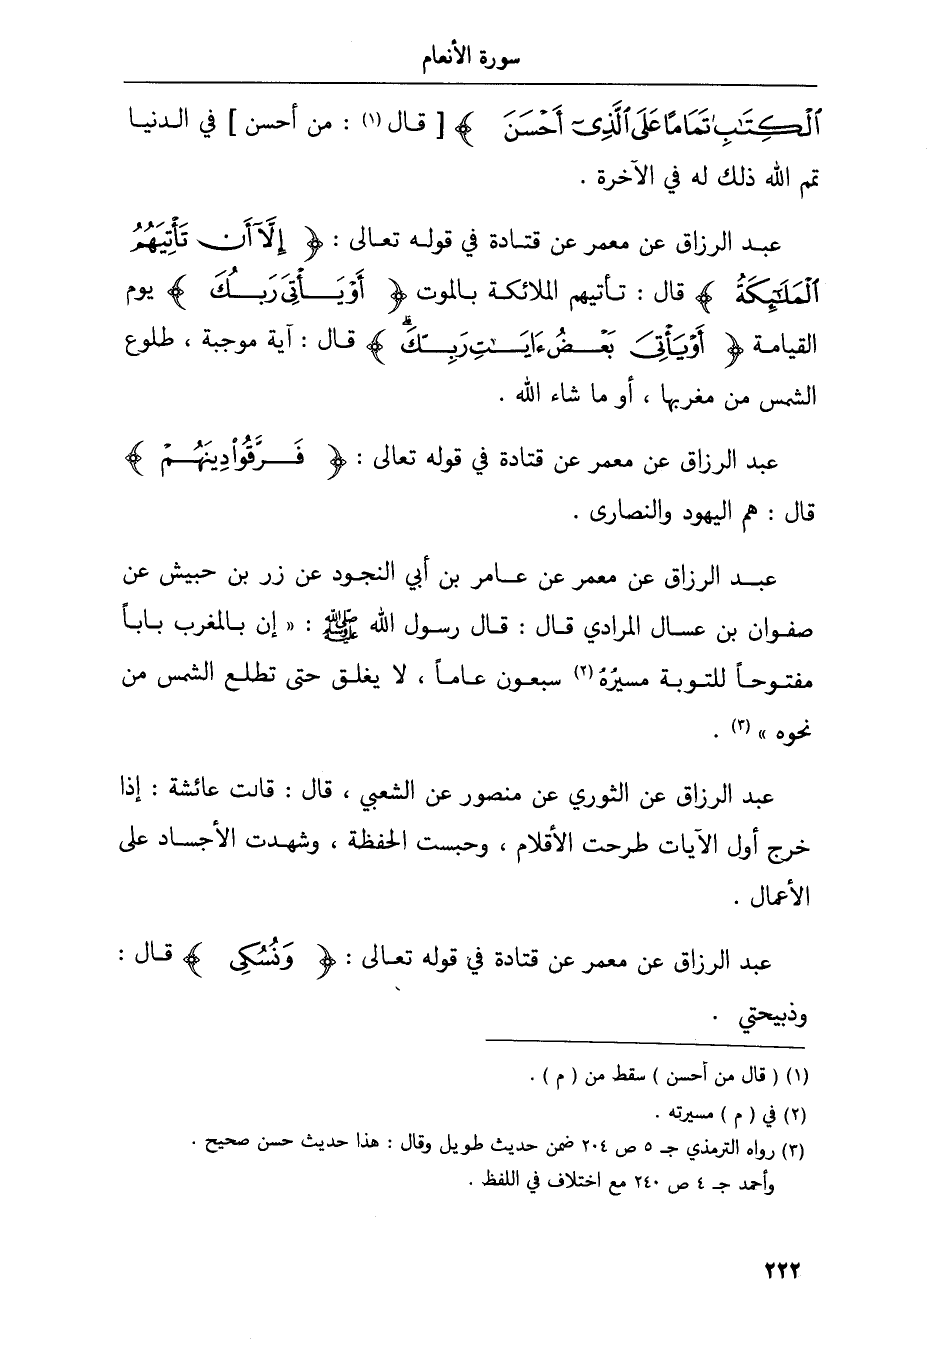 سورة الأنعام
ٱلْكِتَٰبَ تَمَامًا عَلَى ٱلَّذِىٓ أَحْسَنَ ﴾ [ قال (١) : من أحسن ] في الدنيا
تمم الله ذلك له في الآخرة .
عبد الرزاق عن معمر عن قتادة في قوله تعالى : ﴿ إِلَّآ أَن تَأْتِيَهُمُ
ٱلْمَلَٰٓئِكَةُ ﴾ قال : تأتيهم الملائكة بالموت ﴿ أَوْ يَأْتِىَ رَبُّكَ ﴾ يوم
القيامة ﴿ أَوْ يَأْتِىَ بَعْضُ ءَايَٰتِ رَبِّكَ ۗ ﴾ قال : آية موجبة ، طلوع
الشمس من مغربها ، أو ما شاء الله .
عبد الرزاق عن معمر عن قتادة في قوله تعالى : ﴿ فَرَّقُوا۟ دِينَهُمْ ﴾
قال : هم اليهود والنصارى .
عبد الرزاق عن معمر عن عامر بن أبي النجود عن زر بن حبيش عن
صفوان بن عسال المرادي قال : قال رسول الله ﷺ : « إن بالمغرب باباً
مفتوحاً للتوبة مسيرُهُ (٢) سبعون عاماً ، لا يغلق حتى تطلع الشمس من
نحوه » (٣) .
عبد الرزاق عن الثوري عن منصور عن الشعبي ، قال : قالت عائشة : إذا
خرج أول الآيات طرحت الأقلام ، وحبست الحفظة ، وشهدت الأجساد على
الأعمال .
عبد الرزاق عن معمر عن قتادة في قوله تعالى : ﴿ وَنُسُكِى ﴾ قال :
وذبيحتي .
(١) ( قال من أحسن ) سقط من ( م ) .
(٢) في ( م ) مسيرته .
(٣) رواه الترمذي جـ ٥ ص ٢٠٤ ضمن حديث طويل وقال : هذا حديث حسن صحيح .
وأحمد جـ ٤ ص ٢٤٠ مع اختلاف في اللفظ .
٢٢٢